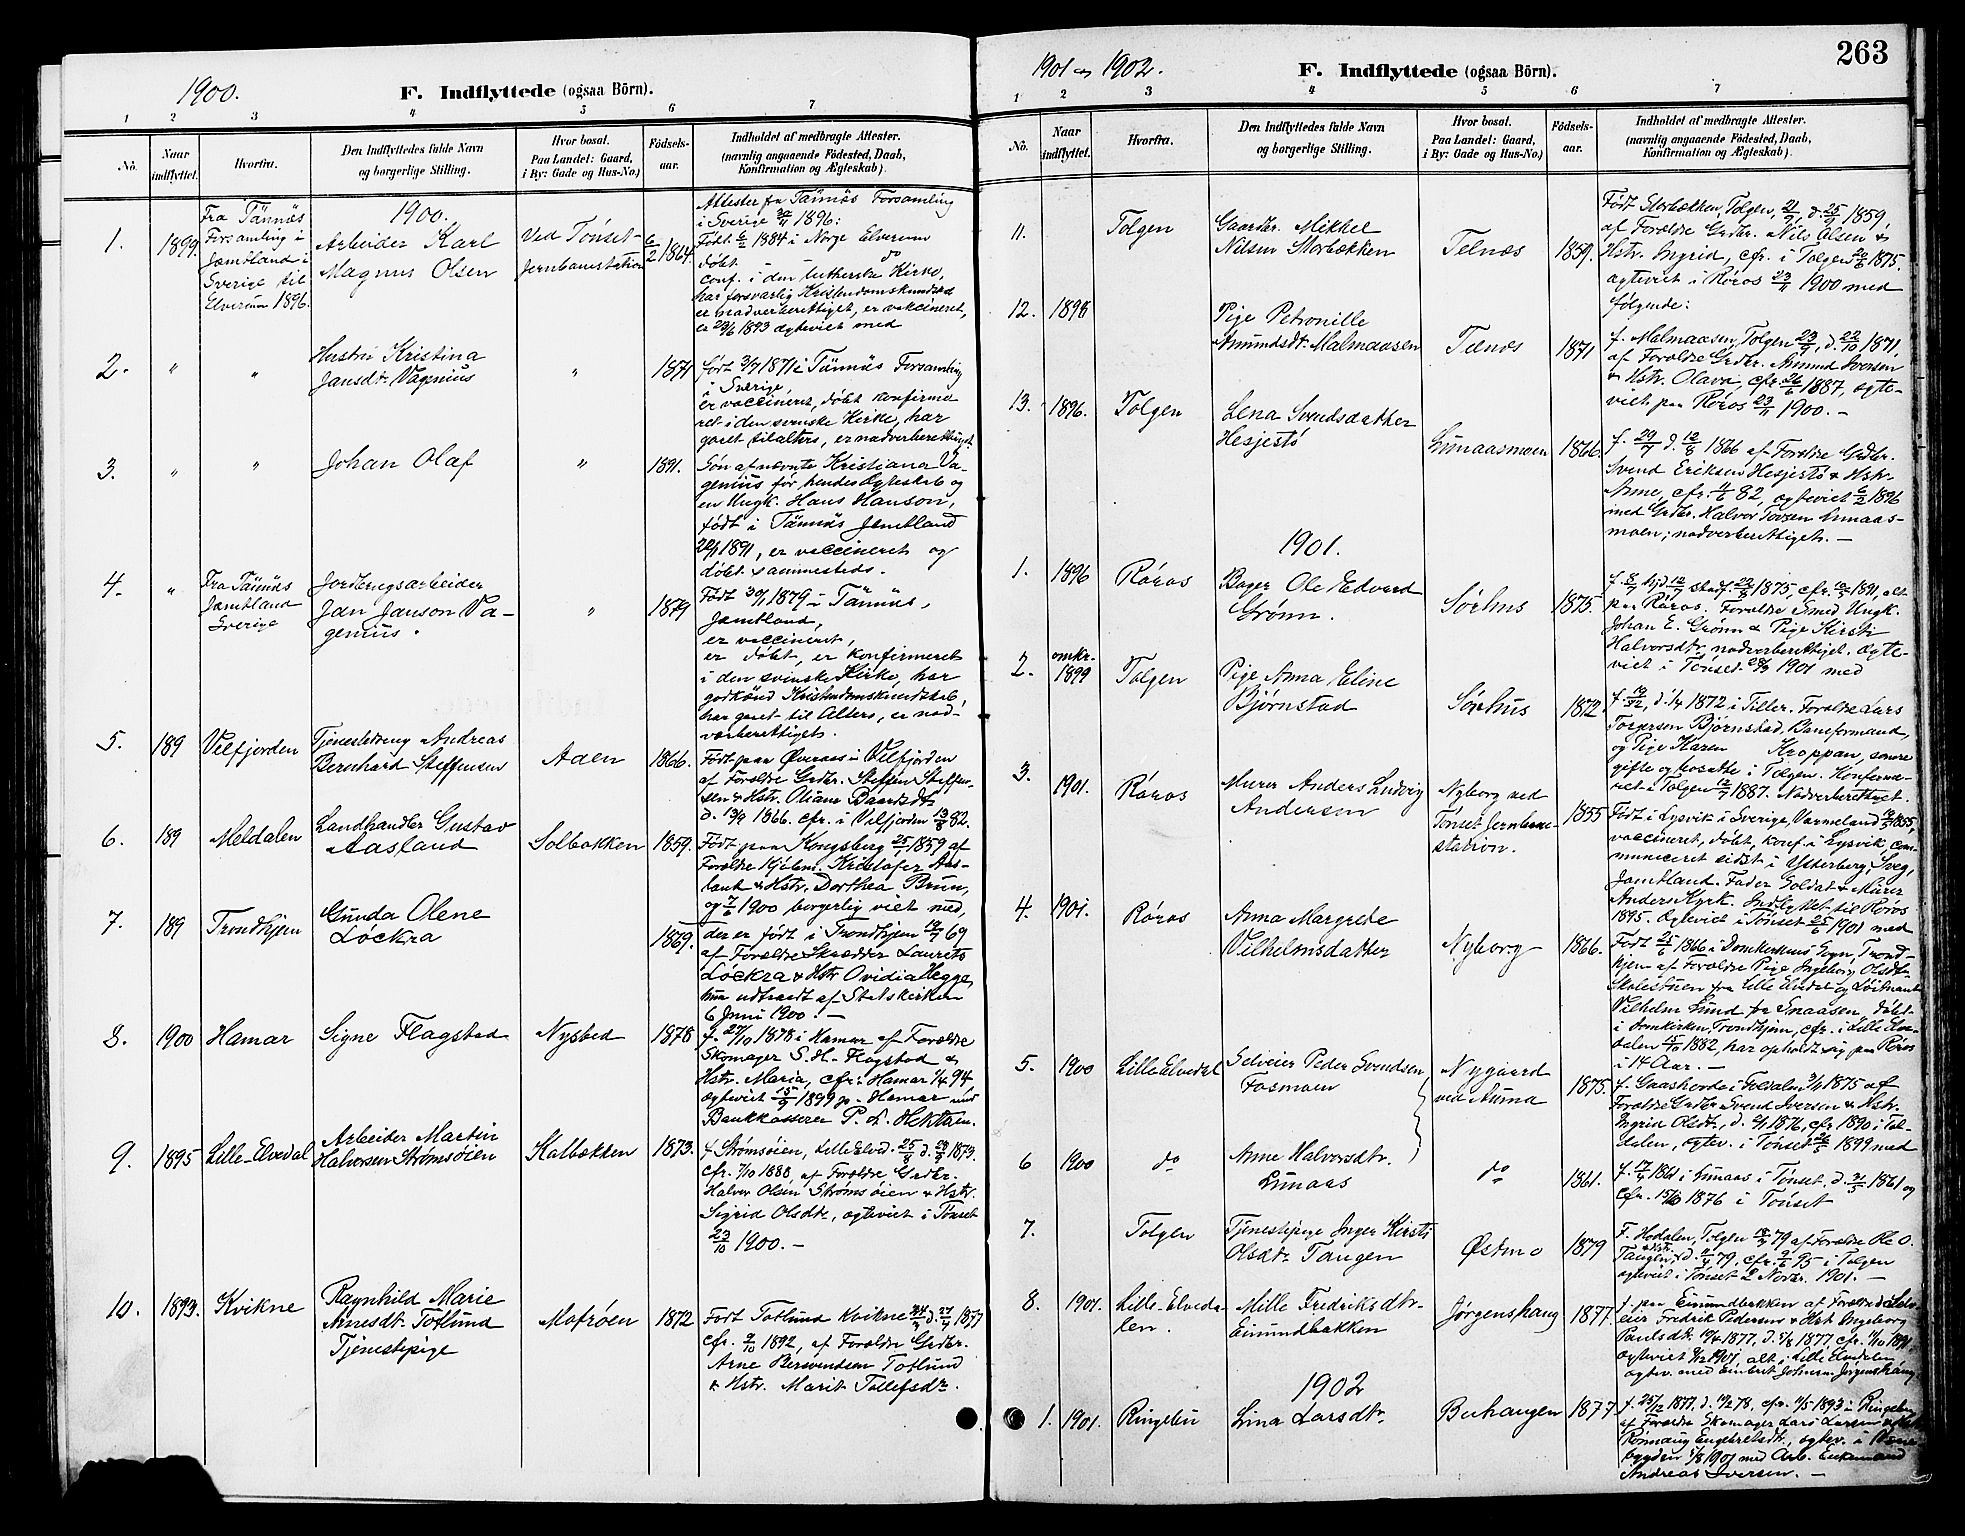 1900.
F. Indflyttede (ogsaa Börn).
1 2 3 4 5 6 7
Nô.
Naar indflyttet.
Hvorfra.
Den Indflyttedes fulde Navn
og borgerlige Stilling.
Hvor bosat.
Paa Landet: Gaard,
i By: Gade og Hus-No.)
Födsels-
aar.
Indholdet af medbragte Attester.
(navnlig angaaende Födested, Daab,
Konfirmation og Ægteskab)
1900.
1.
1899.
Fra Tännäs
Forsamling i
Jämtland i
Sverige til
Elverum 1896.
Arbeider Karl
Magnus Olsen
Ved Tönset-
Jernbanestation
6/2 1864.
Attester fra Tännäs Forsamling
i Sverige 1896:
Födt 6/2 1884 i Norge Elverum
döbt do
conf. i den lutherske Kirke,
har forsvarlig Kristendomskundskab
er nadverberettiget, er vaccineret,
er 23/6 1893 ægteviet med
2.
"
"
Hustru Kristina
Jansdtr Vagenius
"
1871
födt 3/7 1871 i Tännäs Forsamling
i Sverige,
er vaccineret, döbt konfirme-
ret i den svenske Kirke, har
gaaet til alters, er nadverberettiget.
3.
"
"
Johan Olaf
"
1891.
Sön af nævnte Kristiana Va-
genius för hendes Ægteskab og
en Ungk. Hans Hanson,
födt i Tännäs Jemtland
1891, er vaccineret og
döbt sammesteds.
4.
"
Fra Tännäs
Jämtland
Sverige
Jordbrugsarbeider
Jan Janson Va-
genius.
"
1879
Födt 1879 i Tännäs,
Jemtland,
er vaccineret,
er döbt, er konfirmeret
i den svenske Kirke, har
godkjend Kristendomskundskab,
har gaaet til Alters, er nad-
værberettiget.
5.
189
Velfjorden
Tjenestedreng Andreas
Bernhard Steffensen
Aaen
1866.
Födt paa Överaas i Velfjorden
af Forældre Grdbr. Steffen Steffen-
sen & Hstr. Oliane Baardsdtr
d. 13/9 1866. cfr. i Velfjorden 13/8 82.
6.
189
Meldalen
Landhandler Gustav
Aasland
Solbakken
1859.
Födt paa Kongsberg 25/1 1859 af
Forældre Kristofer Aas-
land & Hstr. Dorthea Brun,
og 7/6 1900 borgerlig viet med,
7.
189
Trondhjem
Gunda Olene
Löckra
1869.
der er födt i Trondhjem 69
af Forældre Skrædder Laurits
Löckra & Hstr Ovidia Vegge,
hun udtraadt af Statskirken
6 Juni 1900. —
8.
1900
Hamar
Signe Flagstad
Nysted
1878
f. 27/10 1878 i Hamar af Forældre
Skomager S. H. Flagstad &
Hstr. Maria, cfr. i Hamar 1/4 94,
ægteviet 5/9 1899 p. Hamar med
Bankkasserer P. L. Hektoen.
9.
1895
Lille-Elvedal
Arbeider Martin
Halvorsen Strömsöien
Kalbækken
1873.
f. Strömsöien, Lille Elved. 25/8 d. 28/9 1873.
cfr. 7/10 1888, af Forældre Grdbr.
Halvor Olsen Strömsöien & Hstr.
Sigrid Olsdtr, ægteviet i Tönset
23/10 1900. —
10.
1893.
Kvikne
Ragnhild Marie
Arnesdtr. Totlund
Tjenestepige
Moröen
1872
Födt Totlund Kvikne d. 27/7 1877
cfr. 2/10 1892, af Forældre Grdbr.
Arne Bersvendsen Totlund
& Hstr. Marit Tollefsdtr.
1901 og 1902.
F. Indflyttede (ogsaa Börn).
263
1 2 3 4 5 6 7
Nô.
Naar
indflyttet.
Hvorfra.
Den Indflyttedes fulde Navn
og borgerlige Stilling.
Hvor bosat.
Paa Landet: Gaard,
i By: Gade og Hus-No.)
Födsels-
aar.
Indholdet af medbragte Attester.
(navnlig angaaende Födested, Daab,
Konfirmation og Ægteskab).
11.
Tolgen
Gaardbr. Mikkel
Nilsen Storbækken
Telnæs
1859.
Födt Storbækken, Tolgen, 21/9, d. 25/9 1859
af Forældre Grdbr. Nils Olsen &
Hstr. Ingrid, cfr. i Tolgen 1875.
ægteviet i Röros 23/11 1900 med
fölgende:
12.
1898
Pige Petronille
Amundsdtr. Malmaasen
Telnæs
1871
f. Malmaasen, Tolgen 23/9, d. 22/10 1871,
af Forældre Grdbr. Amund Iversen
& Hstr. Olava, cfr. 26/6 1887, ægte-
viet paa Röros 23/11 1900. —
13.
1896.
Tolgen
Lena Svendsdatter
Hesjestö
Lunaasmoen
1866.
f. 29/7 d. 12/8 1866 af Forældre Grdbr.
Svend Eriksen Hesjestö & Hstr.
Anne, cfr. 4/6 82, ægteviet 6/2 1896
med Grdbr. Halvor Tovsen Lunaas-
moen; nadverberettiget. —
1901.
1.
1896
Röros
Bager Ole Edvard
Grönn.
Sörhus
1875.
f. 8/7 hjd. 12/7 stadf. 22/8 1875, cfr. 1891, alt
paa Röros. Forældre Smed Ungk.
Johan E. Grönn & Pige Kirsti
Halvorsdtr, nadverberettiget. ægte-
viet i Tönset 1901 med
2.
omkr.
1899
Tolgen
Pige Anna Eline
Björnstad
Sörhus
1872
1872 i Tiller. Forældre Lars
Torgersen Björnstad, Baneformand,
og Pige Karen Kroppan, senere
gifte og bosatte i Tolgen. Konferme-
ret i Tolgen 1887. Nadverberettiget.
3.
1901.
Röros
Murer Anders Ludvig
Andersen
Nyborg ved
Tönset Jernbane-
station.
1855
Födt i Lysvik i Sverige, Varmeland 1855,
vaccineret, döbt, konf. i Lysvik, com-
municeret sidst i Ytterberg, Sveg,
Jämtland. Fader Soldat & Murer
Anders Kyrk. Indflyttet til Röros
1895. Ægteviet i Tönset 25/6 1901 med
4.
1901.
Röros
Anna Margrete
Vilhelmsdatter
Nyborg
1866.
Födt 25/6 1866 i Domkirkens Sogn, Trond-
hjem af Forældre Pige Ingeborg Olsdtr
fra Lille Elvedal og Löitnant
Vilhelm Lund fra Snaasen, döbt
i Domkirken, Trondhjem, cfr. i Lille Elve-
dalen 1882, har opholdt sig paa Röros
i 14 Aar. —
5.
1900
Lille Elvedal
Selveier Peder Svendsen
Fosmoen
Nygaard
ved Auma
1875.
f. Gaashorde i Foldalen 1875 af
Forældre Grdbr Svend Iversen & Hstr.
Ingrid Olsdtr, d. 1876, cfr. 1890 i Fol-
dalen, ægtev. i Tönset 1899 med
6
1900
do
Anne Halvorsdtr.
Lunaas
do
1861.
f. 17/4 1861 i Lunaas i Tönset, d. 1861 og
cfr. 1876 i Tönset
7.
Tolgen
Tjenestepige Inger Kirsti
Olsdtr Tangen
Östmo
1879
F. Hodalen, Tolgen 79 af Forældre Ole O.
Tangen & Hstr. d. 79, cfr. 95 i Tolgen
ægteviet i Tönset 2 Novbr. 1901. —
8.
1901.
Lille-Elveda-
len.
Mille Fredriksdtr.
Eimundbakken
Jörgenshaug
1877.
f. paa Eimundbakken af Forældre Selv-
eier Fredrik Pedersen & Hst Ingeborg
Paulsdtr. 1877, d. 1877, cfr. 1891
ægteviet 1901 alt i Lille Elvedalen
ægtev. med Eimbert Johnsen Jörgenshaug.
1902
1.
1901.
Ringebu
Lina Larsdtr.
Buhaugen
1877
f. 25/12 1877, d. 78, cfr. 1893 i Ringebu
af Forældre Skomager Lars Larsen
Rönnaug Engebretsdtr, ægtev. i
bygden 1901 med Arb. Enkemand
Andreas Iversen. —